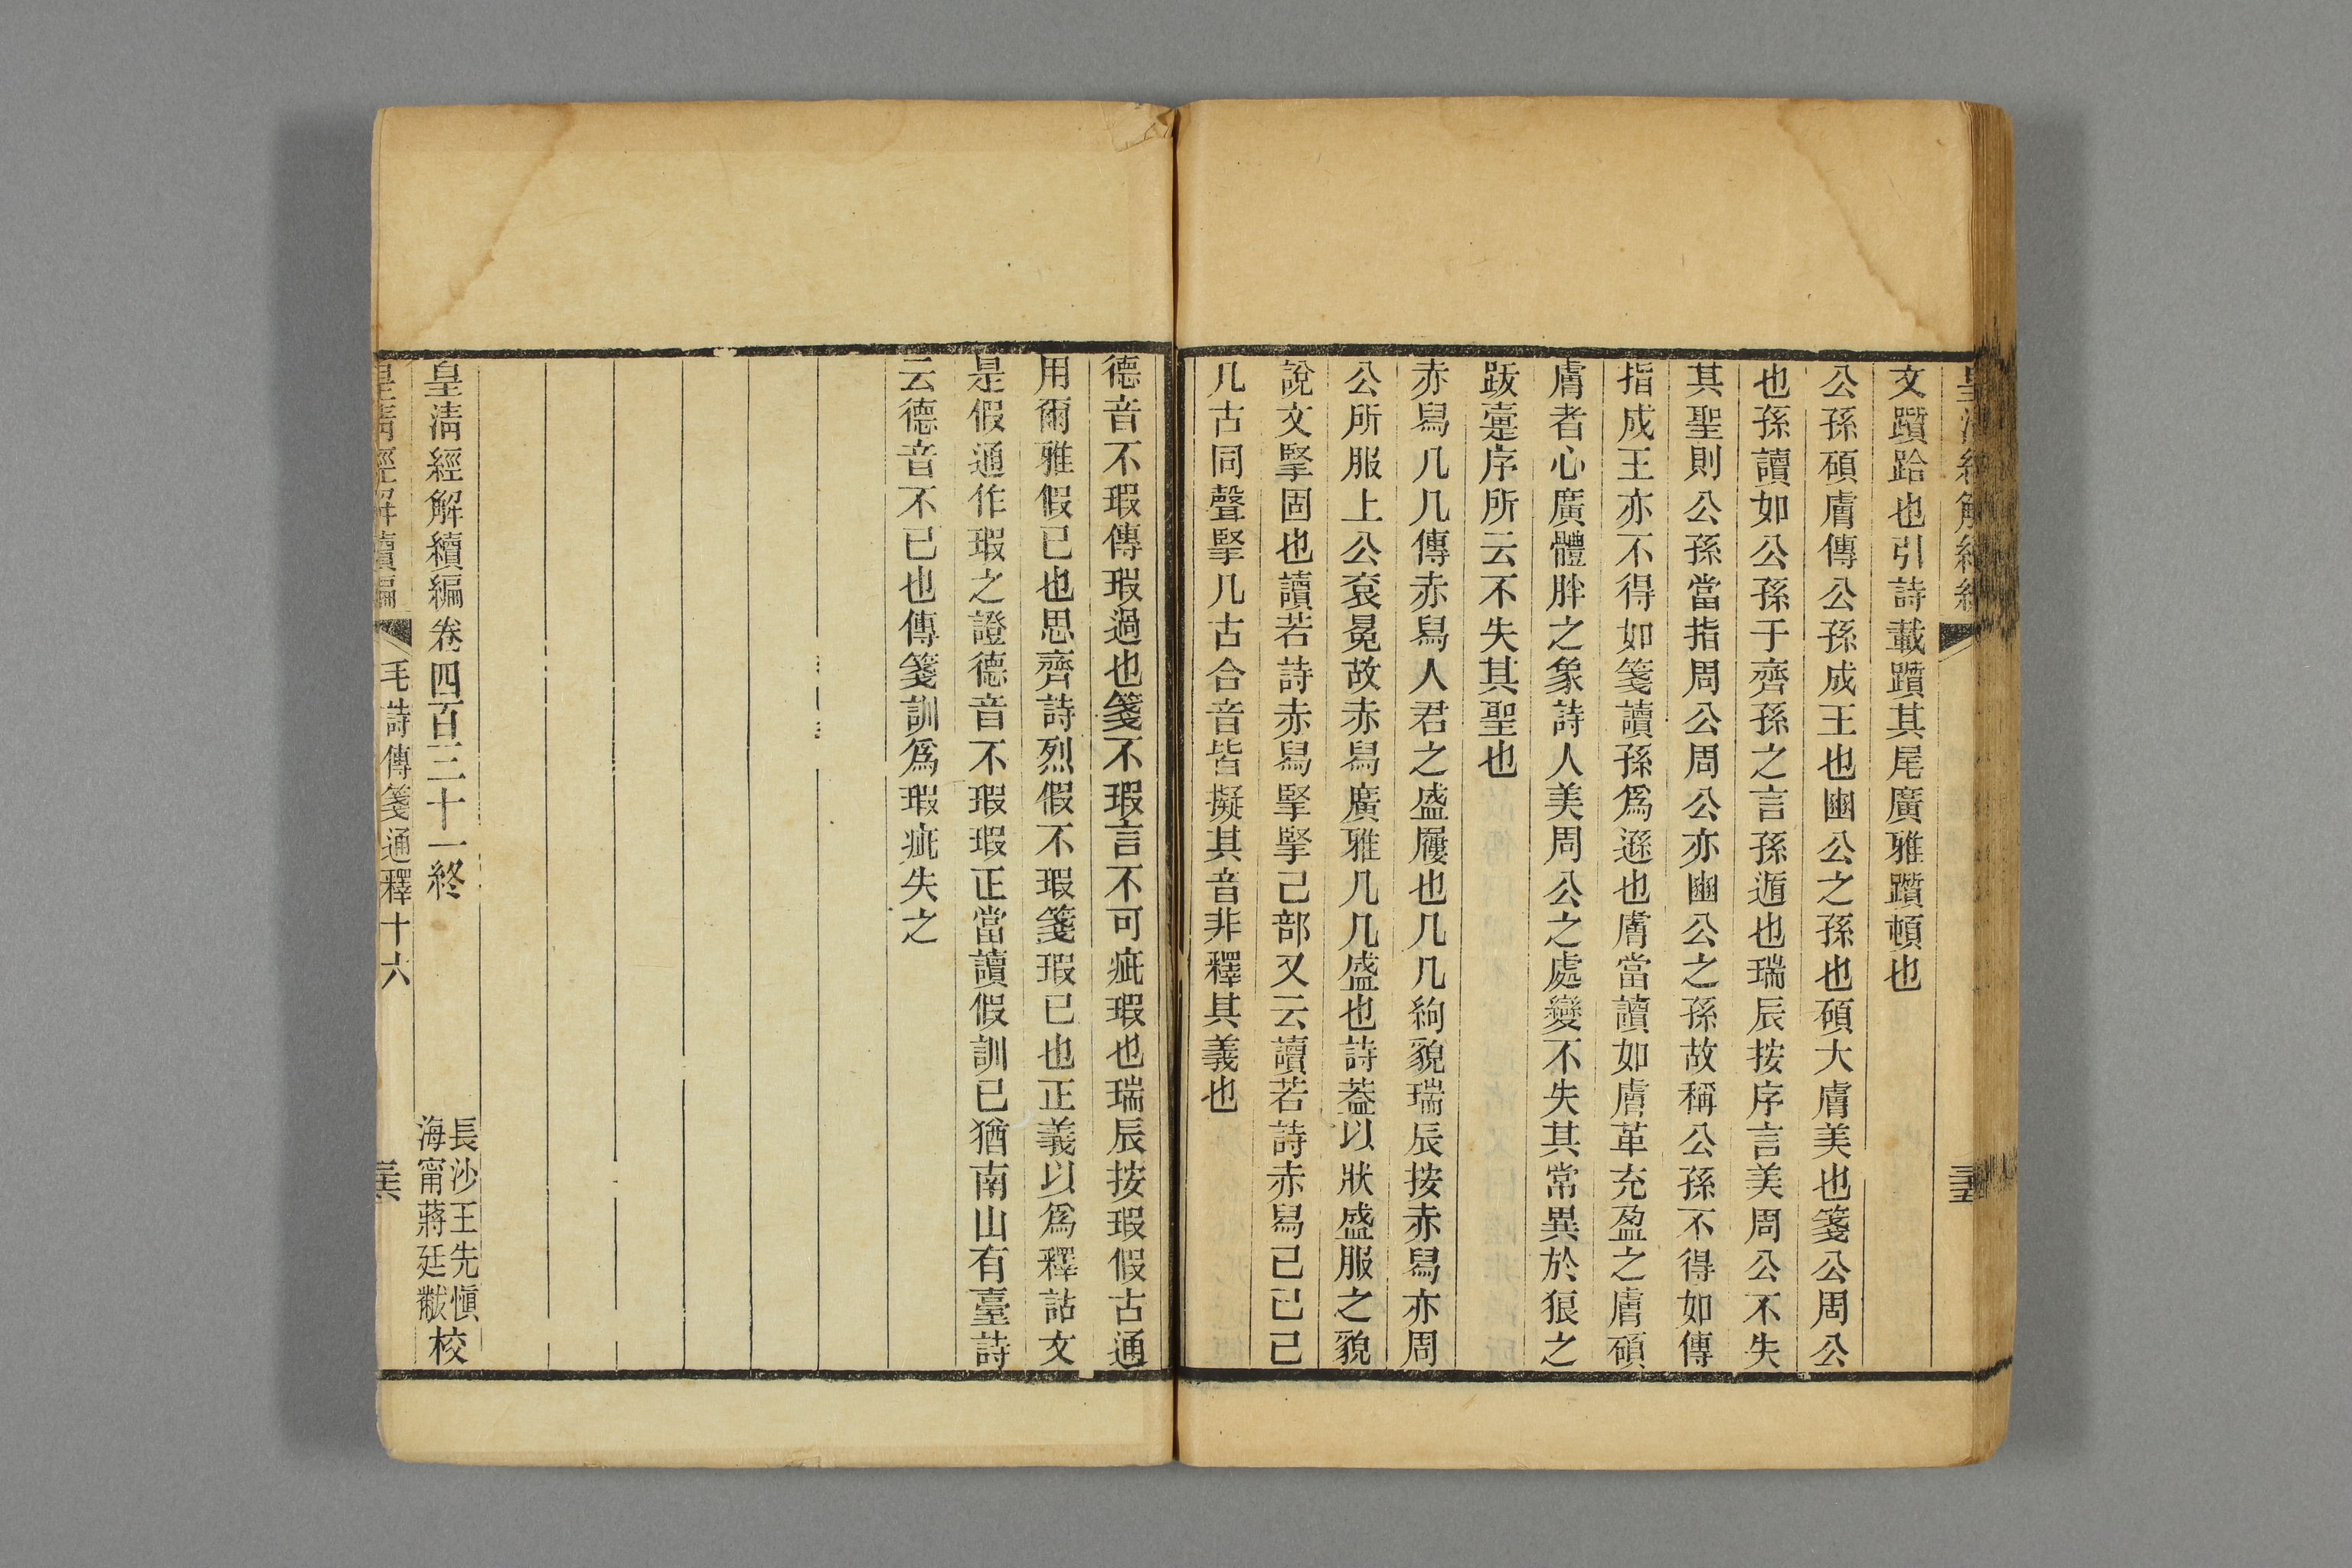 文躓跲也引詩載躓其尾廣雅躓頓也
公孫碩膚傳公孫成王也豳公之孫也碩大膚美也箋公周公
也孫讀如公孫于齊孫之言孫遁也瑞辰按序言美周公不失
其聖則公孫當指周公周公亦豳公之孫故稱公孫不得如傳
指成王亦不得如箋讀孫爲遜也膚當讀如膚革充盈之膚碩
膚者心廣體胖之象詩人美周公之處變不失其常異於狼之
跋疐序所云不失其聖也
赤舄几几傳赤舄人君之盛屨也几几絇貌瑞辰按赤舄亦周
公所服上公衮冕故赤舄廣雅几几盛也詩葢以狀盛服之貌
說文掔固也讀若詩赤舄掔掔己部又云讀若詩赤舄己己己
几古同聲掔几古合音皆擬其音非釋其義也
德音不瑕傳瑕過也箋不瑕言不可疵瑕也瑞辰按瑕假古通
用爾雅假已也思齊詩烈假不瑕箋瑕已也正義以爲釋詁文
是假通作瑕之證德音不瑕瑕正當讀假訓已猶南山有臺詩
云德音不已也傳箋訓爲瑕疵失之
皇淸經解續編卷四百三十一終
長沙王先愼
海甯蔣廷黻校
皇淸經解續編
毛詩傳箋通釋十六